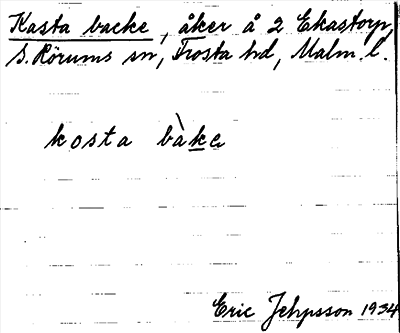 Kasta backe, åker å 2 Ekastorp,
S. Rörums sn, Frosta hd, Malm. l.
kosta bàke
Eric Jehpsson 1934